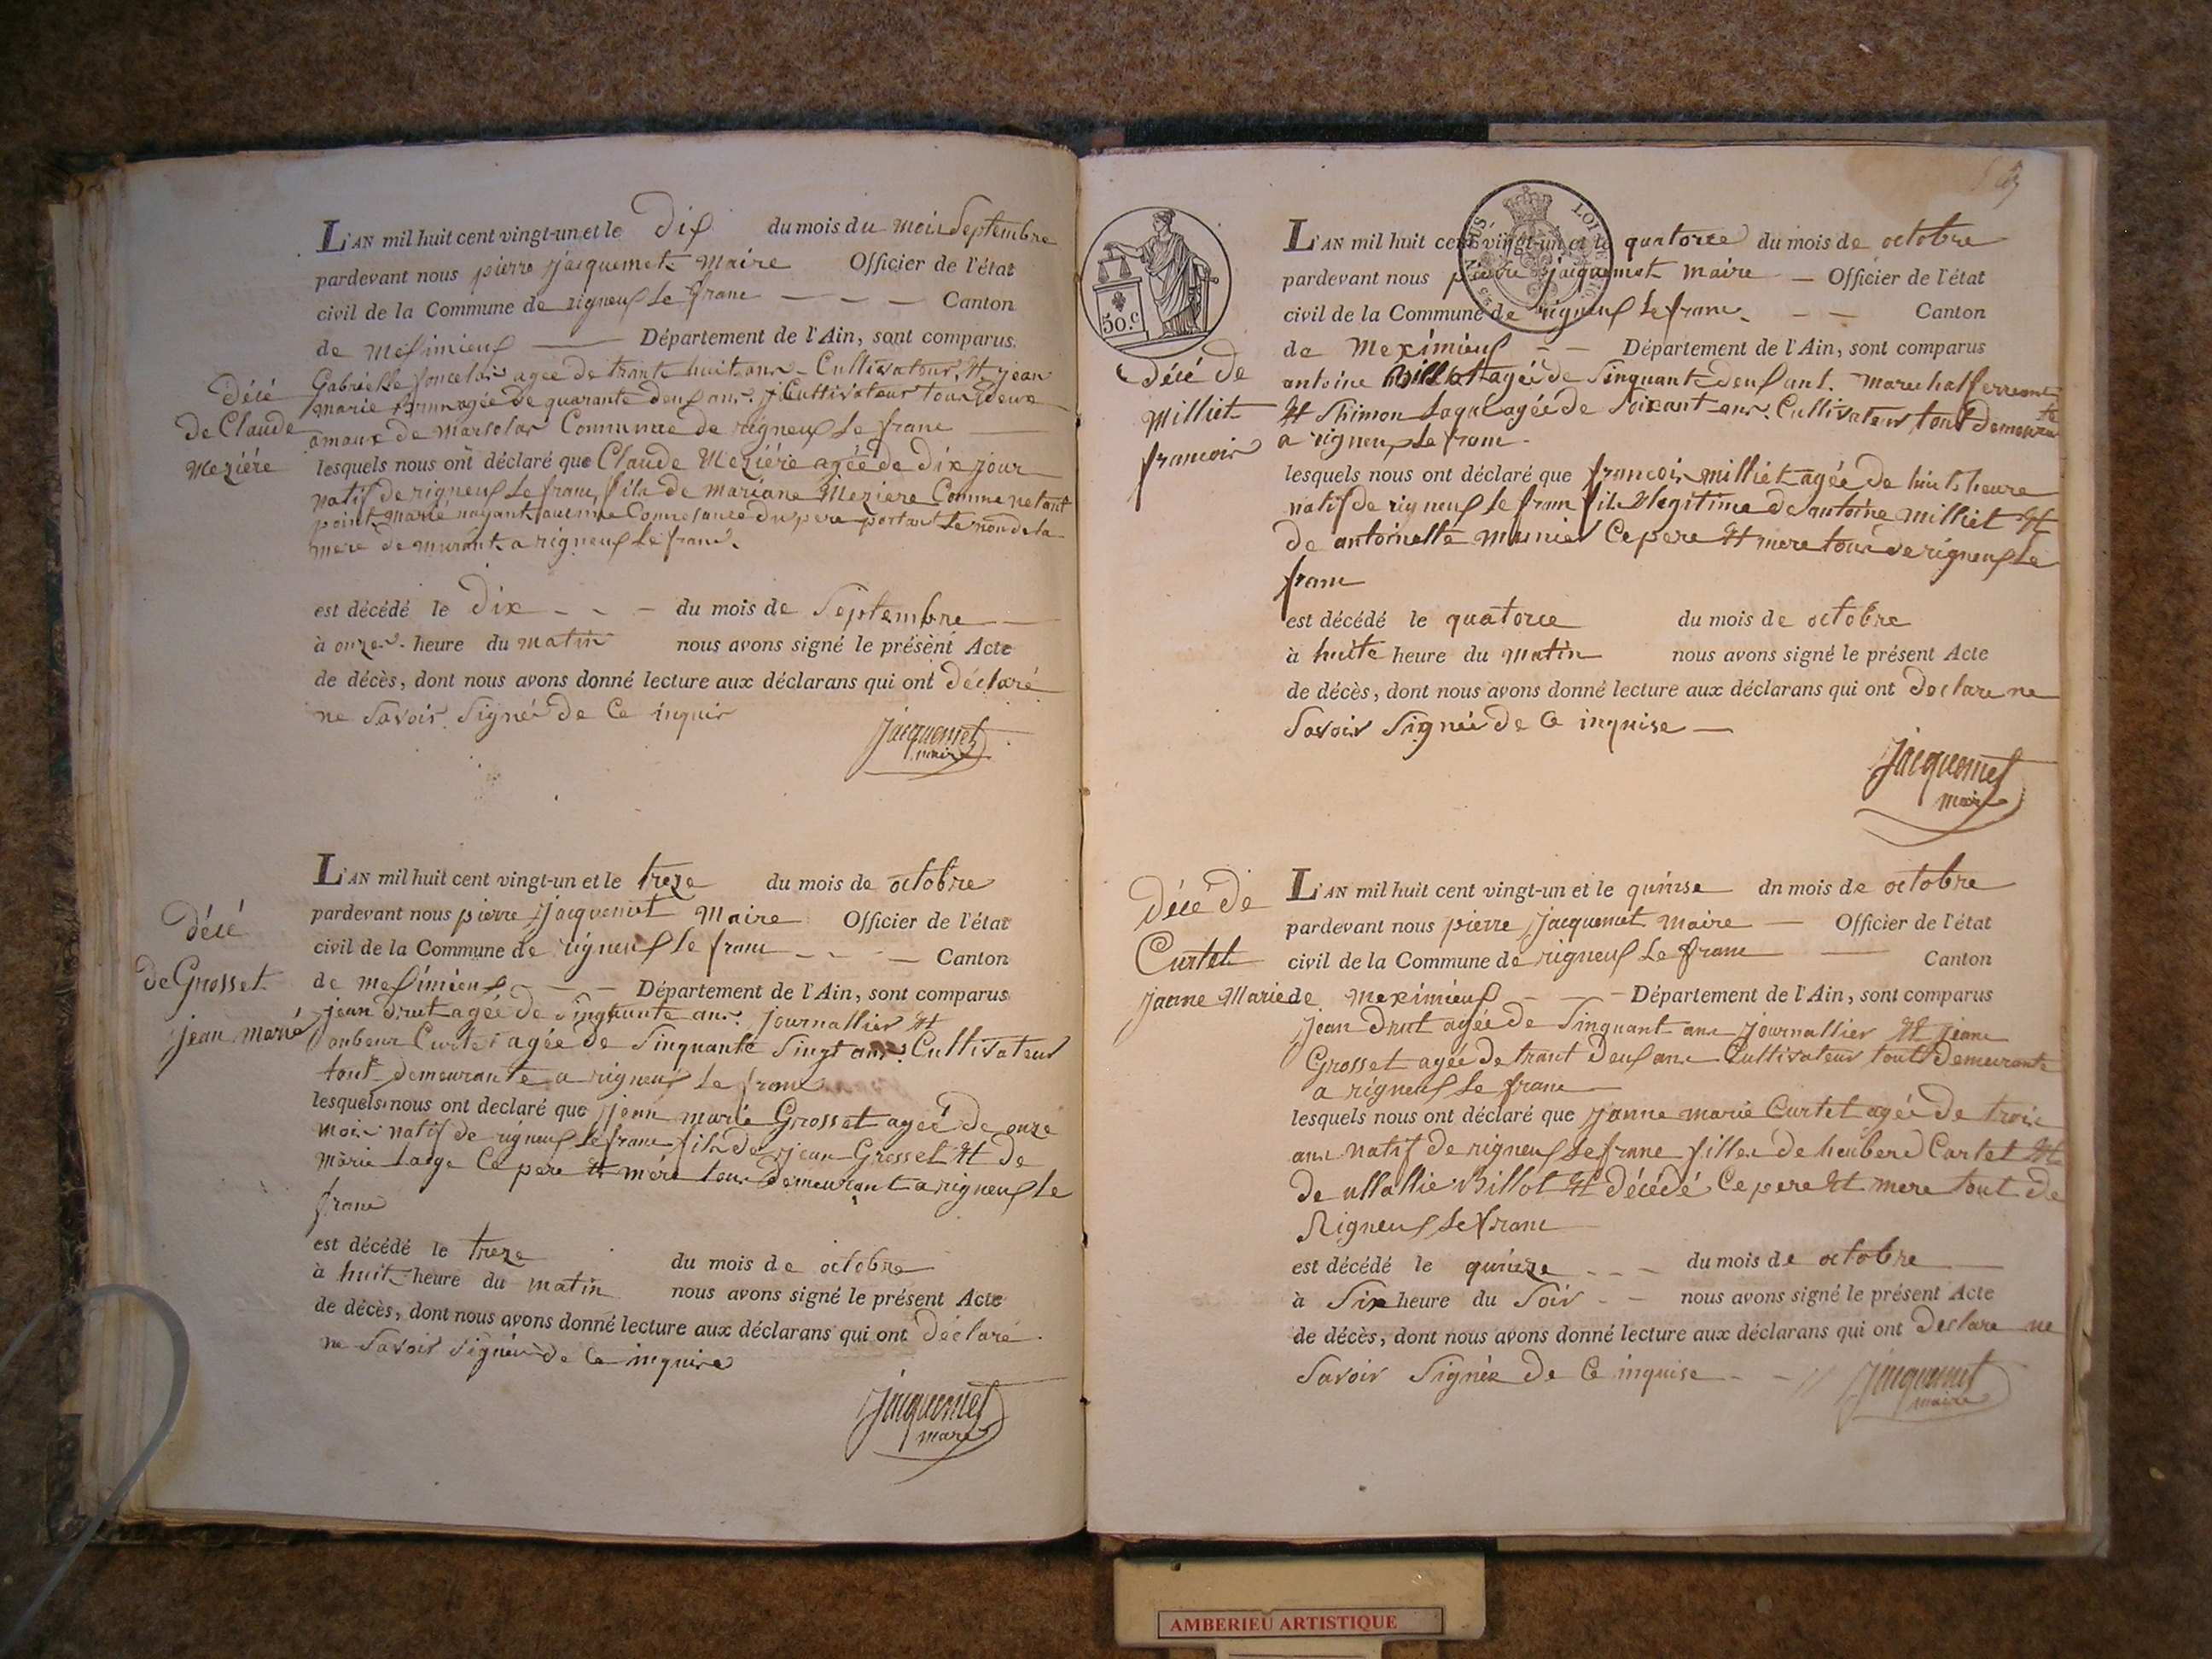 L'AN mil huit cent vingt-un et le Dix du mois du mois Septembre
pardevant nous pierre jacquemet maire Officier de l'état
civil de la Commune de rigneux Le franc Canton
de Meximieux Département de l'Ain, sont comparus
Gabrielle agée de trante huit ans Cultivateur, Et jean
marie Brun agée de quarante deux ans Cultivateur tous deux
Commune de rigneux Le franc
Décé
De Claude
Meziére
lesquels nous ont déclaré que Claude Meziére agée de dix jour
natif de rigneux Le franc, fils de mariane Meziere Comme netant
point marié nayant aucune Connesance du pere portant Le nom de la
mere demurant a rigneux Le franc.
est décédé le Dix du mois de Septembre
à onze heure du matin nous avons signé le présent Acte
de décès, dont nous avons donné lecture aux déclarans qui ont Déclaré
ne Savoir Signée De Ce inquis
Jacquemet
maire
L'AN mil huit cent vingt-un et le treze du mois de octobre
pardevant nous pierre Jacquemet Maire Officier de l'état
civil de la Commune de rigneux Le franc Canton
de meximieux Département de l'Ain, sont comparus
jean Drut agée de Sinquante ans journallier Et
Curtet agée de Sinquante Sinqt ans Cultivateur
tout demeurante a rigneux Le franc
Décé
de Grosset
jean marie
lesquels nous ont declaré que jean marie Grosset agée de onze
mois natif de rigneux Le franc fils De jean Grosset Et De
Marie Large Ce pere Et mére tous Demeurant a rigneux Le
franc
est décédé le treze du mois de octobre
à huit heure du matin nous avons signé le présent Acte
de décès, dont nous avons donné lecture aux déclarans qui ont Déclaré
ne Savoir Signée De Ce inquise
Jacquemet
mare
50.c
L'AN mil huit cent vingt-un et le quatorze du mois de octobre
pardevant nous pierre jacquemet maire Officier de l'état
civil de la Commune de rigneux Le franc Canton
de Meximieux Département de l'Ain, sont comparus
antoine Billot agée de Sinquante deux ant. marechal ferrent
Et Thimon agée de Soixant ans Cultivateur, tout Demeurante
a rigneux Le franc
Décé de
Milliet
francois
lesquels nous ont déclaré que francois milliet agée de huit heure
natif de rigneux Le franc fils Legitime de antoine milliet Et
De antoinette Munier Ce pere Et mere tous de rigneux Le
franc
est décédé le quatorce du mois de octobre
à huite heure du matin nous avons signé le présent Acte
de décès, dont nous avons donné lecture aux déclarans qui ont Declare ne
Savoir Signée De Ce inquise
Jacquemet
maire
L'AN mil huit cent vingt-un et le quinse dn mois de octobre
pardevant nous pierre jacquemet maire Officier de l'état
civil de la Commune de rigneux Le franc Canton
de Meximieux Département de l'Ain, sont comparus
jean Drut agée de Sinquant ans journallier Et jean
Grosset agée de trant Deux ans Cultivateur tout Demeurante
a rigneux Le franc
Décé de
Curtet
janne Marie
lesquels nous ont déclaré que janne marie Curtet agée de trois
ans natif de rigneux Le franc filles de heubere Curtet Et
De Billot Et décédé Ce pere Et mere tout De
Rigneux Le franc
est décédé le quinze du mois de octobre
à Six heure du Soir nous avons signé le présent Acte
de décès, dont nous avons donné lecture aux déclarans qui ont Declare ne
Savoir Signée De Ce inquise
Jacquemet
maire
AMBERIEU ARTISTIQUE